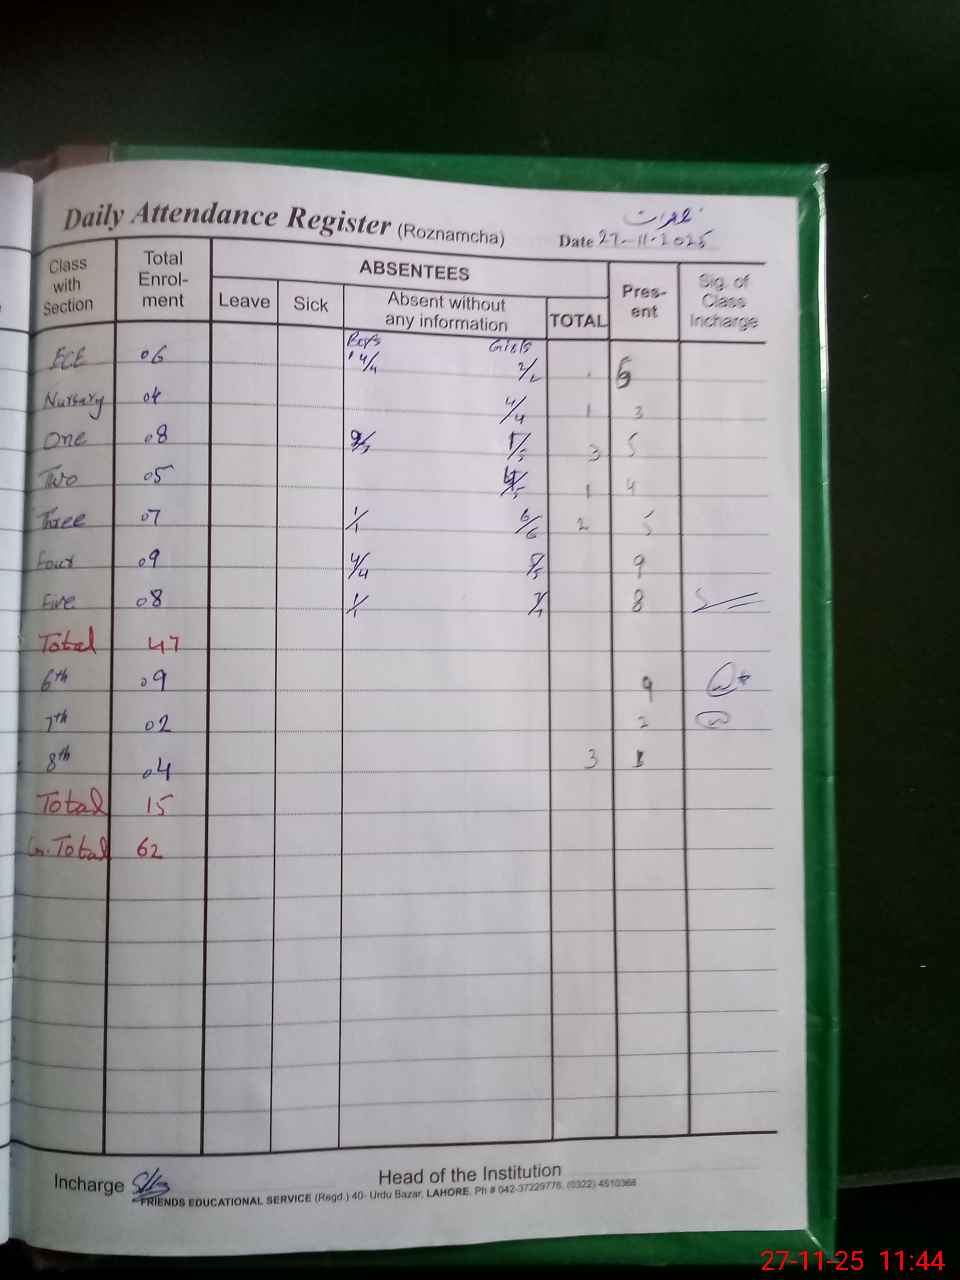 جمعرات
Daily Attendance Register (Roznamcha) Date 27-11-2025
Class with Section Total Enrol-ment ABSENTEES Pres-ent Sig. of Class Incharge
Leave Sick Absent without any information TOTAL
Boys Girls
ECE 06 4/4 2/2 6
Nursary 04 4/4 1 3
One 08 3 5
Two 05 1 4
Three 07 1/1 6/6 2 5
Four 09 4/4 5/5 9
Five 08 1/1 7/7 8
Total 47
6th 09 9
7th 02 2
8th 04 3 1
Total 15
G.Total 62
Incharge Head of the Institution
FRIENDS EDUCATIONAL SERVICE (Regd.) 40- Urdu Bazar, LAHORE. Ph # 042-37229776, (0322) 4510366
27-11-25 11:44